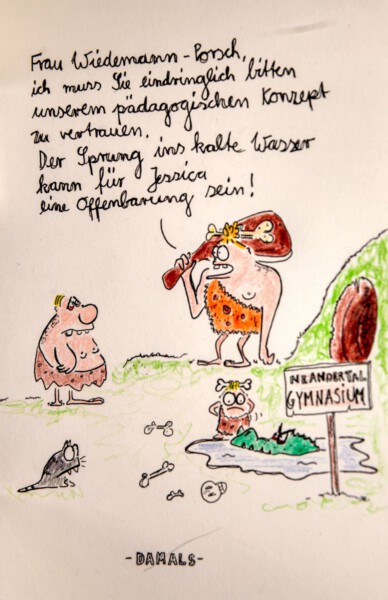 Frau Wiedemann-Porsch,
ich muss Sie eindringlich bitten
unserem pädagogischen Konzept
zu vertrauen.
Der Sprung ins kalte Wasser
kann für Jessica
eine Offenbarung sein!
NEANDERTAL
GYMNASIUM
-DAMALS-